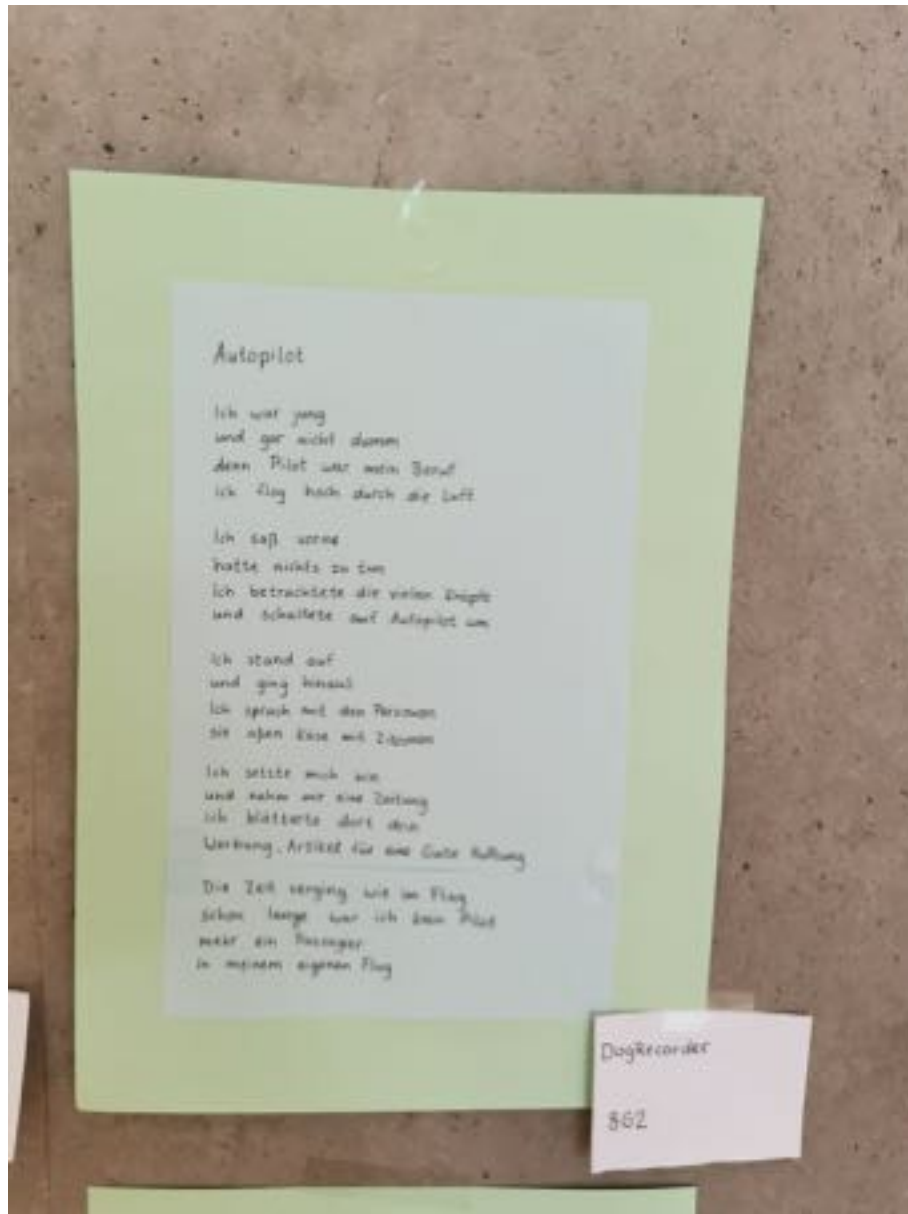 Autopilot
Ich war jung
und gar nicht dumm
denn Pilot war mein Beruf
ich flog hoch durch die Luft
Ich saß vorne
hatte nichts zu tun
Ich betrachtete die vielen Knöpfe
und schaltete auf Autopilot um
Ich stand auf
und ging hinaus
Ich sprach mit den Personen
sie aßen Käse mit Zitronen
Ich setzte mich
und nahm mir eine Zeitung
ich blätterte dort drin
Werbung, Artikel für eine Gute
Die Zeit verging wie im Flug
schon lange war ich kein Pilot
mehr ein Passagier
in meinem eigenen Flug
DogRecorder
8G2